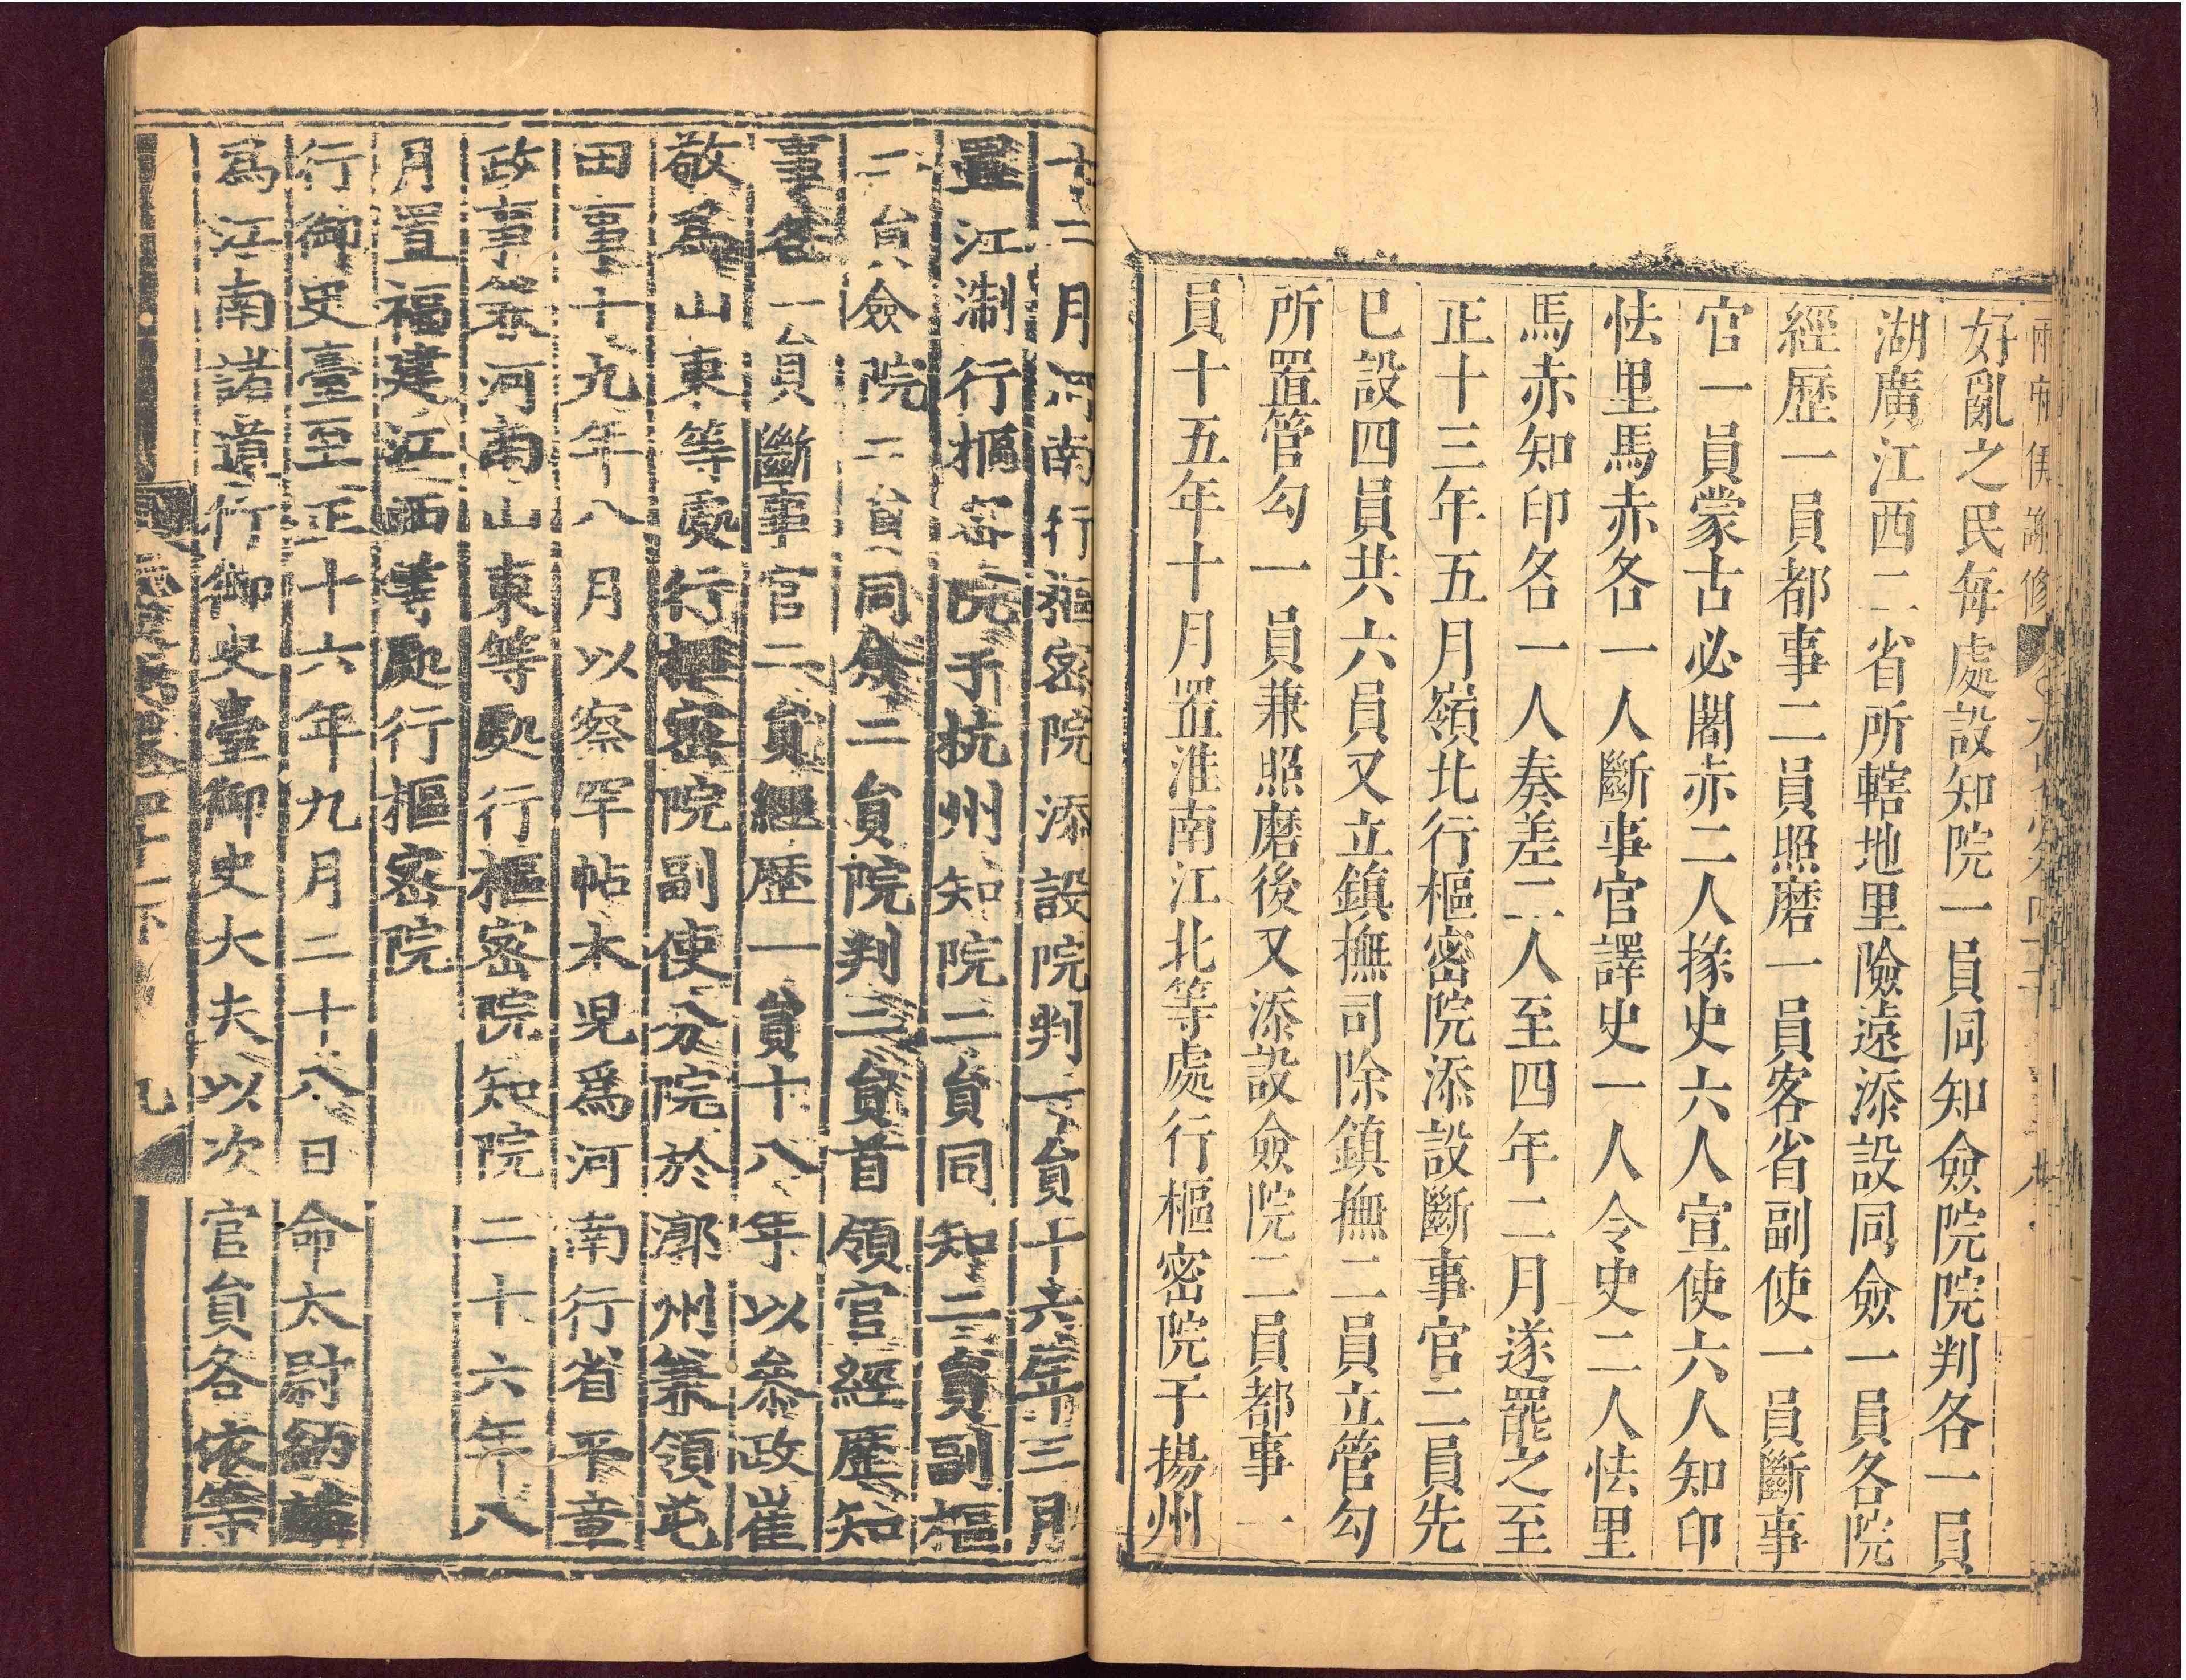 好亂之民每處設知院一員同知僉院院判各一員
湖廣江西二省所轄地里險遠添設同僉一員各院
經歷一員都事二員照磨一員客省副使一員斷事
官一員蒙古必闍赤二人掾史六人宣使六人知印
怯里馬赤各一人斷事官譯史一人令史二人怯里
馬赤知印各一人奏差二人至四年二月遂罷之至
正十三年五月嶺北行樞密院添設斷事官二員先
已設四員共六員又立鎮撫司除鎮撫二員立管勾
所置管勾一員兼照磨後又添設僉院二員都事一
員十五年十月置淮南江北等處行樞密院于揚州
十二月河南行樞密院添設院判一員十六年三月
置江浙行樞密院于杭州知院二員同知二員副樞
二員僉院二員同僉二員院判二員首領官經歷知
事各一員斷事官二員經歷一員十八年以參政崔
敬爲山東等處行樞密院副使分院於漷州兼領屯
田事十九年八月以察罕帖木兒爲河南行省平章
政事兼河南山東等處行樞密院知院二十六年八
月置福建江西等處行樞密院
行御史臺至正十六年九月二十八日命太尉納麟
爲江南諸道行御史臺御史大夫以次官員各依等
九